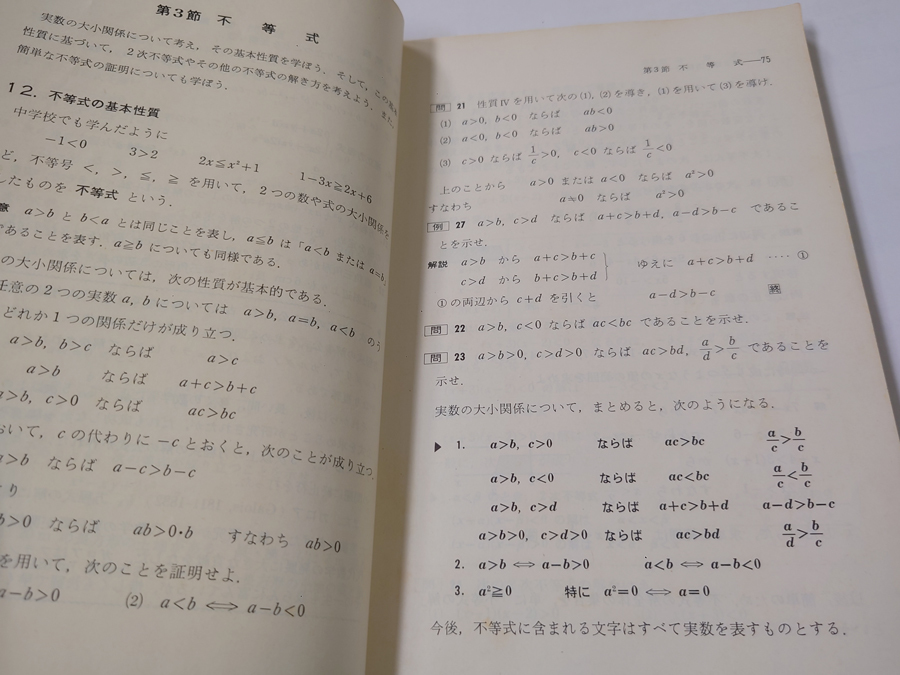 第3節 不 等 式
実数の大小関係について考え，その基本性質を学ぼう．そして，この基本
性質に基づいて，2次不等式やその他の不等式の解き方を考えよう．また，
簡単な不等式の証明についても学ぼう．
12. 不等式の基本性質
中学校でも学んだように
−1<0 3>2 2x≦x²+1 1−3x≧2x+6
ど，不等号 <，>，≦，≧ を用いて，2つの数や式の大小関係を
したものを 不等式 という．
意 a>b と b<a とは同じことを表し，a≦b は「a<b または a=b」
であることを表す．a≧b についても同様である．
の大小関係については，次の性質が基本的である．
任意の2つの実数 a, b については a>b, a=b, a<b のう
どれか1つの関係だけが成り立つ．
a>b, b>c ならば a>c
a>b ならば a+c>b+c
a>b, c>0 ならば ac>bc
おいて，c の代わりに −c とおくと，次のことが成り立つ．
a>b ならば a−c>b−c
より
b>0 ならば ab>0·b すなわち ab>0
を用いて，次のことを証明せよ．
a−b>0 (2) a<b ⟺ a−b<0
第3節 不 等 式——75
問 21 性質Ⅳを用いて次の(1), (2)を導き，(1)を用いて(3)を導け．
(1) a>0, b<0 ならば ab<0
(2) a<0, b<0 ならば ab>0
(3) c>0 ならば 1/c>0, c<0 ならば 1/c<0
上のことから a>0 または a<0 ならば a²>0
すなわち a≒0 ならば a²>0
例 27 a>b, c>d ならば a+c>b+d, a−d>b−c であるこ
とを示せ．
解説 a>b から a+c>b+c
c>d から b+c>b+d ゆえに a+c>b+d ‥‥ ①
①の両辺から c+d を引くと a−d>b−c 終
問 22 a>b, c<0 ならば ac<bc であることを示せ．
問 23 a>b>0, c>d>0 ならば ac>bd, a/d>b/c であることを
示せ．
実数の大小関係について，まとめると，次のようになる．
▶ 1. a>b, c>0 ならば ac>bc a/c>b/c
a>b, c<0 ならば ac<bc a/c<b/c
a>b, c>d ならば a+c>b+d a−d>b−c
a>b>0, c>d>0 ならば ac>bd a/d>b/c
2. a>b ⟺ a−b>0 a<b ⟺ a−b<0
3. a²≧0 特に a²=0 ⟺ a=0
今後，不等式に含まれる文字はすべて実数を表すものとする．